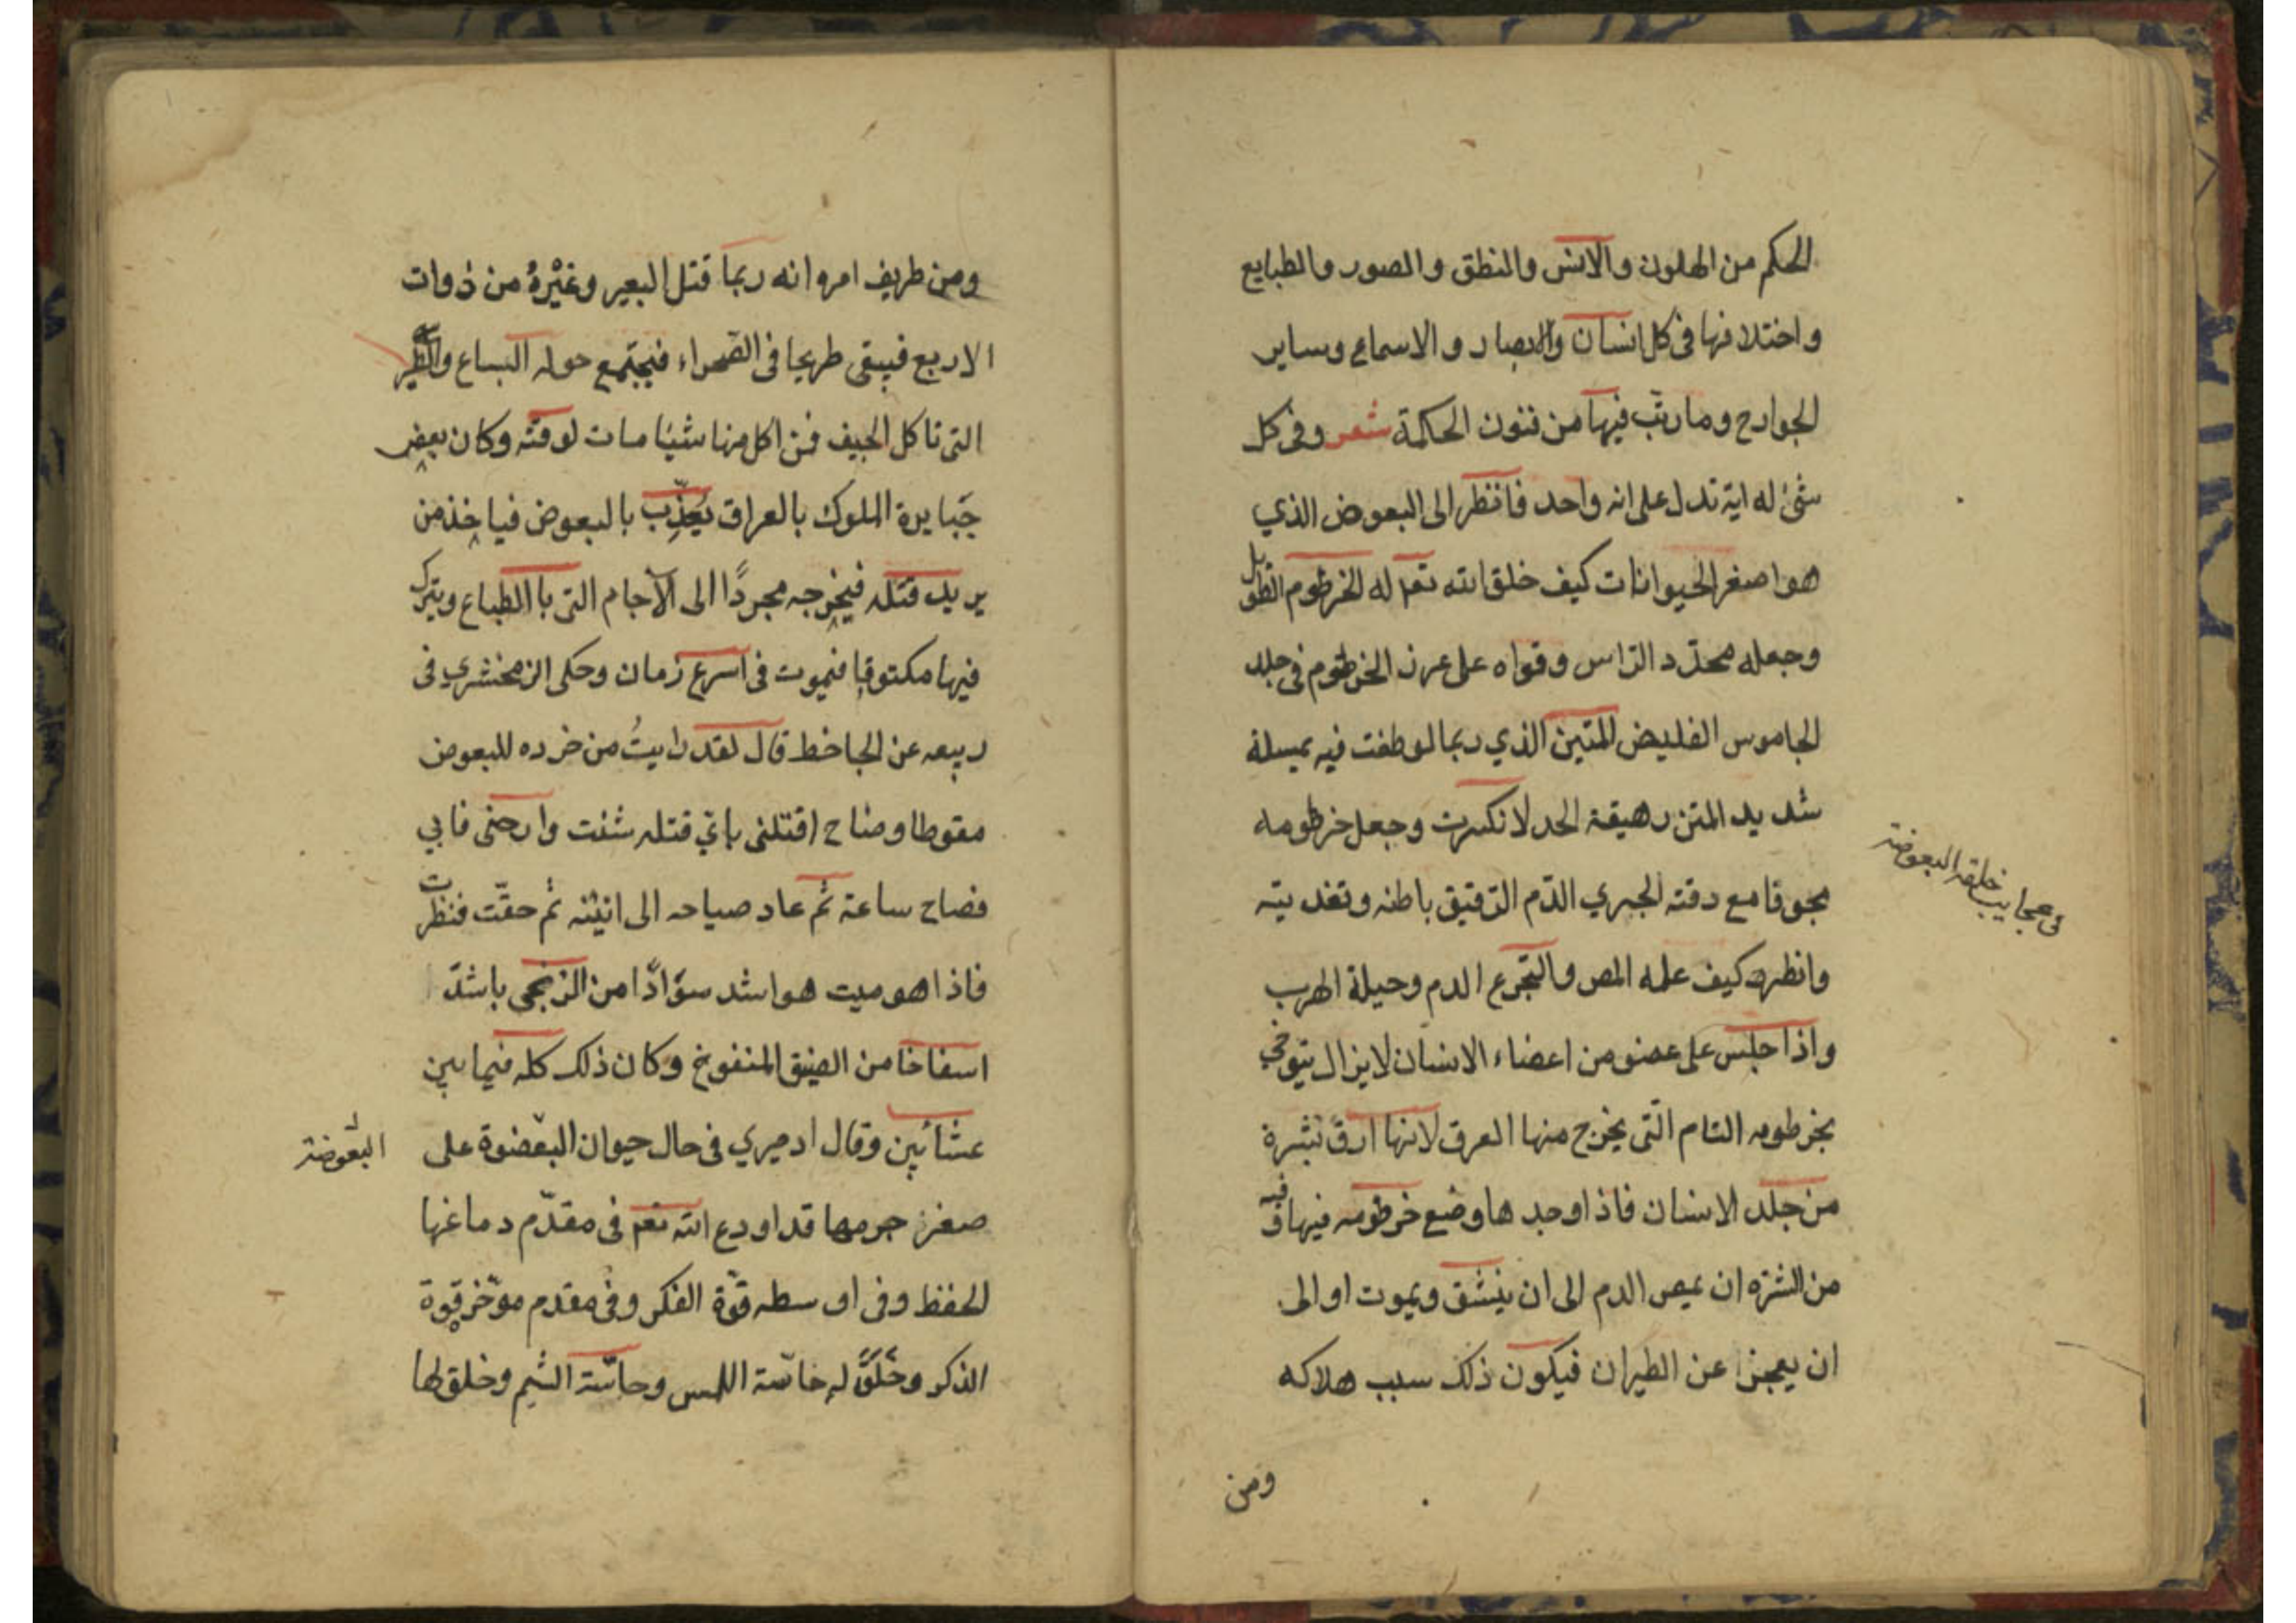 الحكم من الهلون والانس والنطق والصور والطبايع
واختلافها فى كل انسان والابصار والاسماع وساير
الجوارح وما رتّب فيها من فنون الحكمة شعر وفى كل
شئ له اية تدل على انه واحد فانظر الى البعوض الذي
هو اصغر الحيوانات كيف خلق الله تعم له الخرطوم الطويل
وجعله محدّد الرّاس وقواه على عرز الخرطوم فى جلد
الجاموس الغليض المتين الذي ربما لو طغت فيه بمسلة
شديد المتن رهيقة الحد لانكسرت وجعل خرطومه
مجوفا مع دقته لجبري الدّم الرّقيق باطنه وتغديته
وانظر كيف علمه المص والتجّرع الدم وحيلة الهرب
واذا جلس على عضو من اعضاء الانسان لا يزال يتوخي
بخرطومه التام الّتى يخرج منها العرق لانها ارق بشرة
من جلد الانسان فاذا وجد ها وضع خرطومه فيها وفيه
من الشره ان يمص الدم الى ان ينشق ويموت او الى
ان يعجز عن الطيران فيكون ذلك سبب هلاكه
ومن
فى عجايب خلقة البعوضة
ومن طريف امره انه ربما قتل البعير وغيْرهُ من ذوات
الاربع فيبقى طريحا فى الصّحراء فيجتمع حوله السباع والطير
التى تاكل الجيف فمن اكل منها شيئا مات لوقته وكان بعض
جَبابرة الملوك بالعراق يُعذّب بالبعوض فياخذ من
يريد قتله فيخرجه مجردًا الى الآجام التى با الطباع ويترك
فيها مكتوفا فيموت فى اسرع زمان وحكى الزمخشري فى
ربيعه عن الجاخط قال لقد رايتُ من ضرده للبعوض
مقوطا وصاح اقتلنى باي قتله شئت وارحنى فابي
فصاح ساعة ثم عاد صياحه الى انيْنه ثم حقّت فنظرت
فاذا هو ميت هو اشد سوَادًا من الزنجى باشدّ
اسفاخا من الضيق المنفوخ وكان ذلك كله فيما بين
عشائين وقال ادميري فى حال حيوان البعْضوة على
البعُوضة
صغر جرمها قد اودع الله تعم فى مقدّم دماغها
الحفظ وفى اوسطه قوّة الفكر وفى مقدم موّخر قوة
الذكر وخَلَقَ له حاسّة اللمس وحاسّة الشم وخلق لها